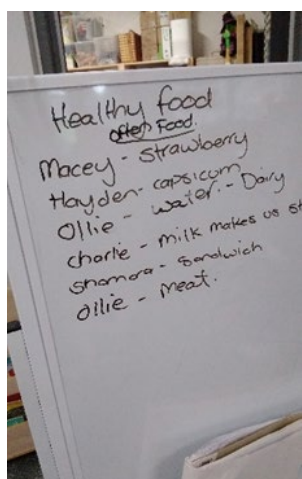 Healthy food
often Food.
Macey - strawberry
Hayden - capsicum
Ollie - water. - Dairy
charlie - milk makes us st
Shamara - Sandwich
Ollie - Meat.